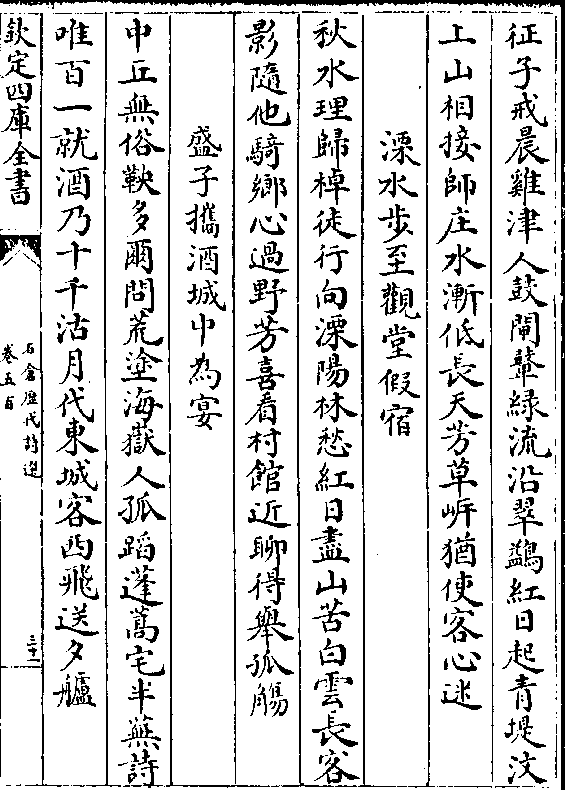 征子戒晨雞津人鼓閘鼙緑流沿翠鷁紅日起青堤汶
上山相接師庄水漸低長天芳草岸猶使客心迷
溧水步至觀堂假宿
秋水理歸棹徒行向溧陽林愁紅日盡山苦白雲長客
影隨他騎鄉心過野芳喜看村館近聊得舉孤觴
盛子攜酒城中為宴
中丘無俗鞅多爾問荒塗海嶽人孤蹈蓬蒿宅半蕪詩
唯百一就酒乃十千沽月代東城客西飛送夕艫
欽定四庫全書
石倉歷代詩選
卷五百
三十一